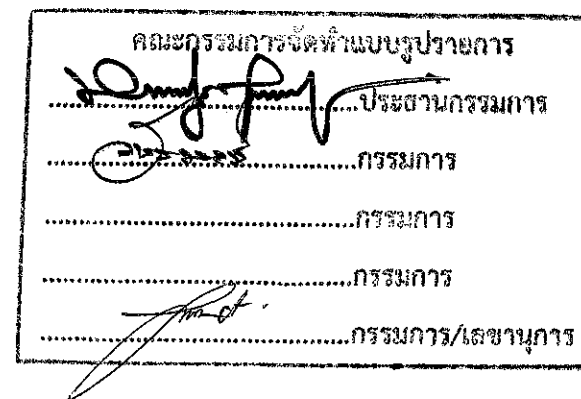 คณะกรรมการจัดทำแบบรูปรายการ
....................ประธานกรรมการ
....................กรรมการ
....................กรรมการ
....................กรรมการ
....................กรรมการ/เลขานุการ